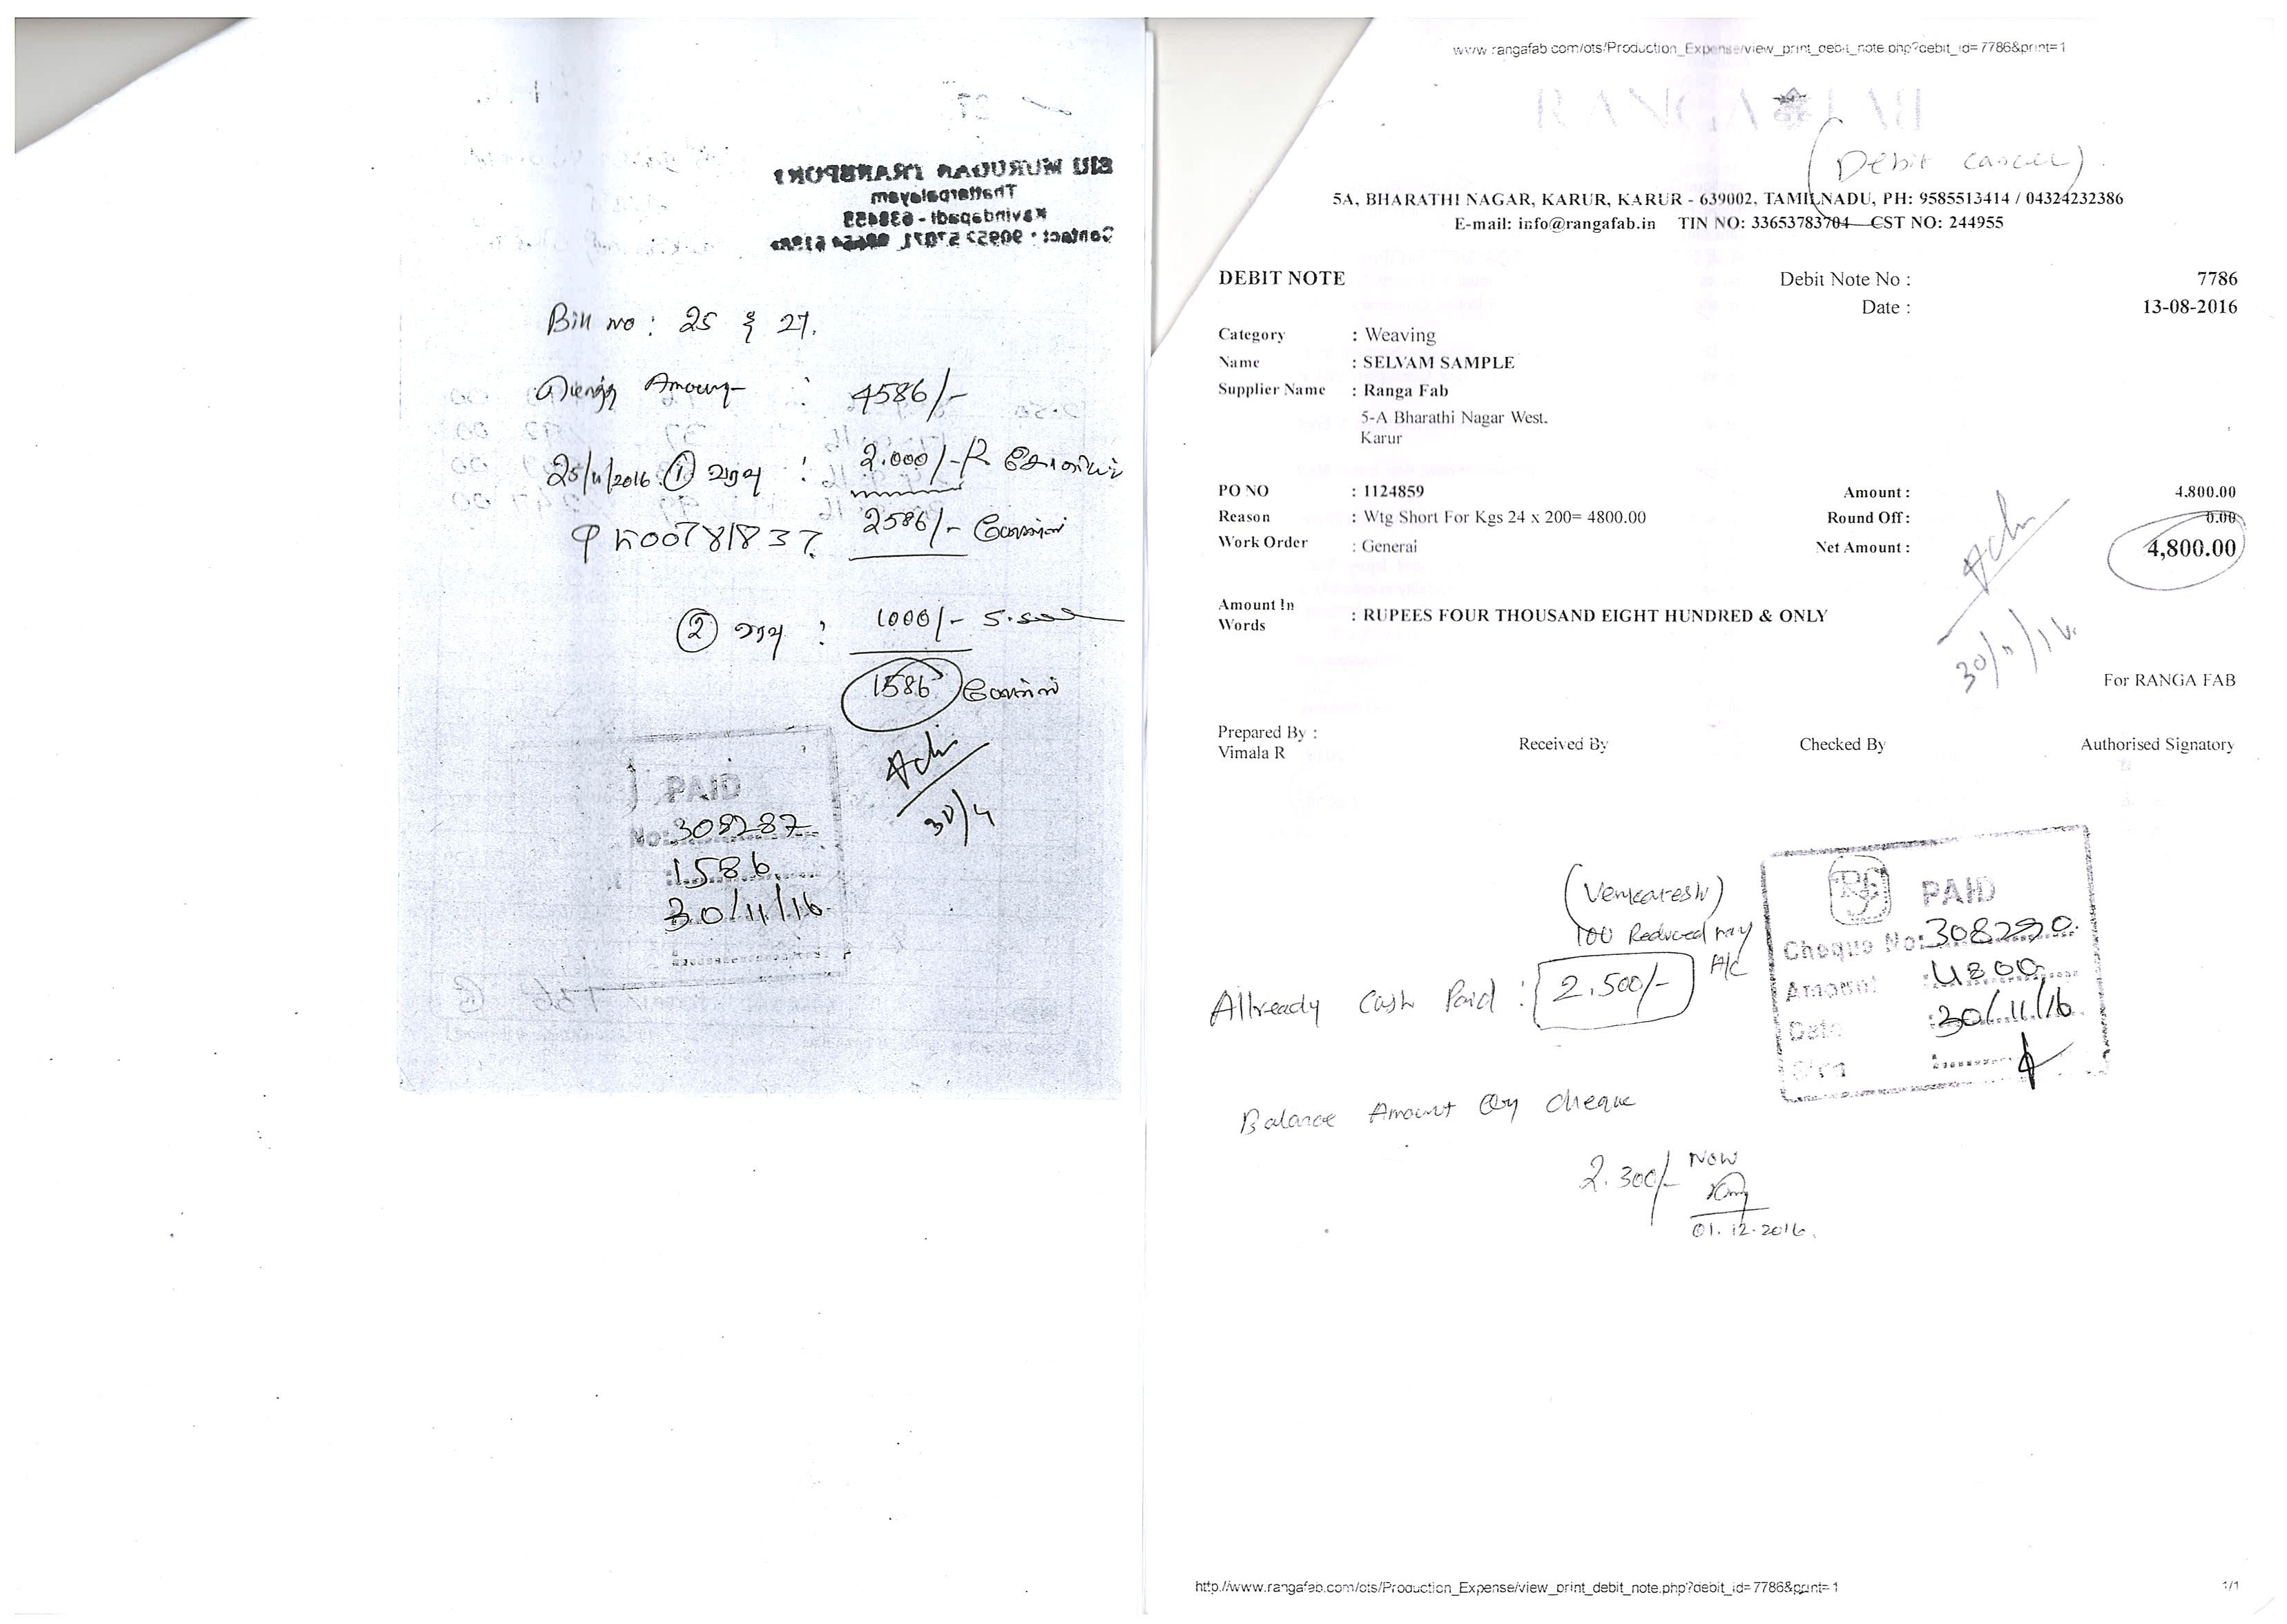 Bill no : 25 & 27.
Amount : 4586/-
25/11/2016 ① வரவு : 2.000/-
2586/-
② வரவு : 1000/-
1586
30/11
PAID
No: 308287
1586
30/11/16
www.rangafab.com/ots/Production_Expense/view_print_debit_note.php?debit_id=7786&print=1
RANGA FAB
(Debit cancel).
5A, BHARATHI NAGAR, KARUR, KARUR - 639002, TAMILNADU, PH: 9585513414 / 04324232386
E-mail: info@rangafab.in TIN NO: 33653783704 CST NO: 244955
DEBIT NOTE Debit Note No : 7786
Date : 13-08-2016
Category : Weaving
Name : SELVAM SAMPLE
Supplier Name : Ranga Fab
5-A Bharathi Nagar West.
Karur
PO NO : 1124859 Amount : 4,800.00
Reason : Wtg Short For Kgs 24 x 200= 4800.00 Round Off : 0.00
Work Order : General Net Amount : 4,800.00
Amount In Words : RUPEES FOUR THOUSAND EIGHT HUNDRED & ONLY
30/11/16.
For RANGA FAB
Prepared By :
Vimala R Received By Checked By Authorised Signatory
(Venkatesh)
100 Reduced my
A/c
Allready Cash Paid : 2.500/-
PAID
Cheque No: 308290
Amount : 4800
Date : 30/11/16
Sign
Balance Amount By cheque
2.300/- Now
01.12.2016.
http://www.rangafab.com/ots/Production_Expense/view_print_debit_note.php?debit_id=7786&print=1 1/1